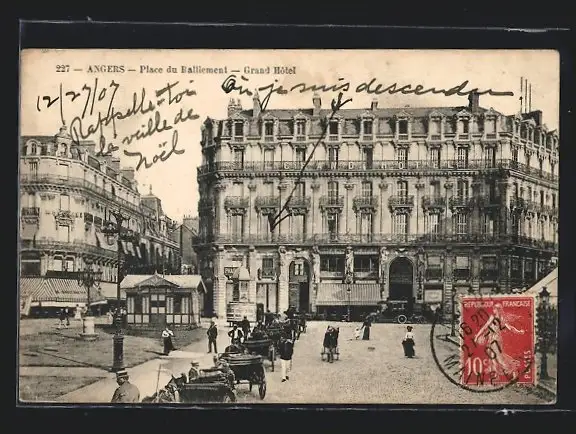 227 - ANGERS - Place du Ralliement - Grand Hôtel
Où je suis descendu
12/27/07
Rappelle-toi
la veille de
Noël
REPUBLIQUE FRANÇAISE
10
POSTES